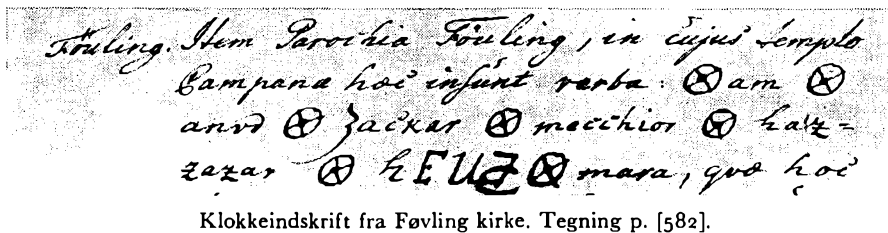 Föuling. Item Parochia Föuling, in cujus templo
Campanæ hæc insunt verba: ⊗ am ⊗
anvd ⊗ Zackar ⊗ mecchior ⊗ halz=
zazar ⊗ h EUZ ⊗ mara, qvæ hoc
Klokkeindskrift fra Føvling kirke. Tegning p. [582].